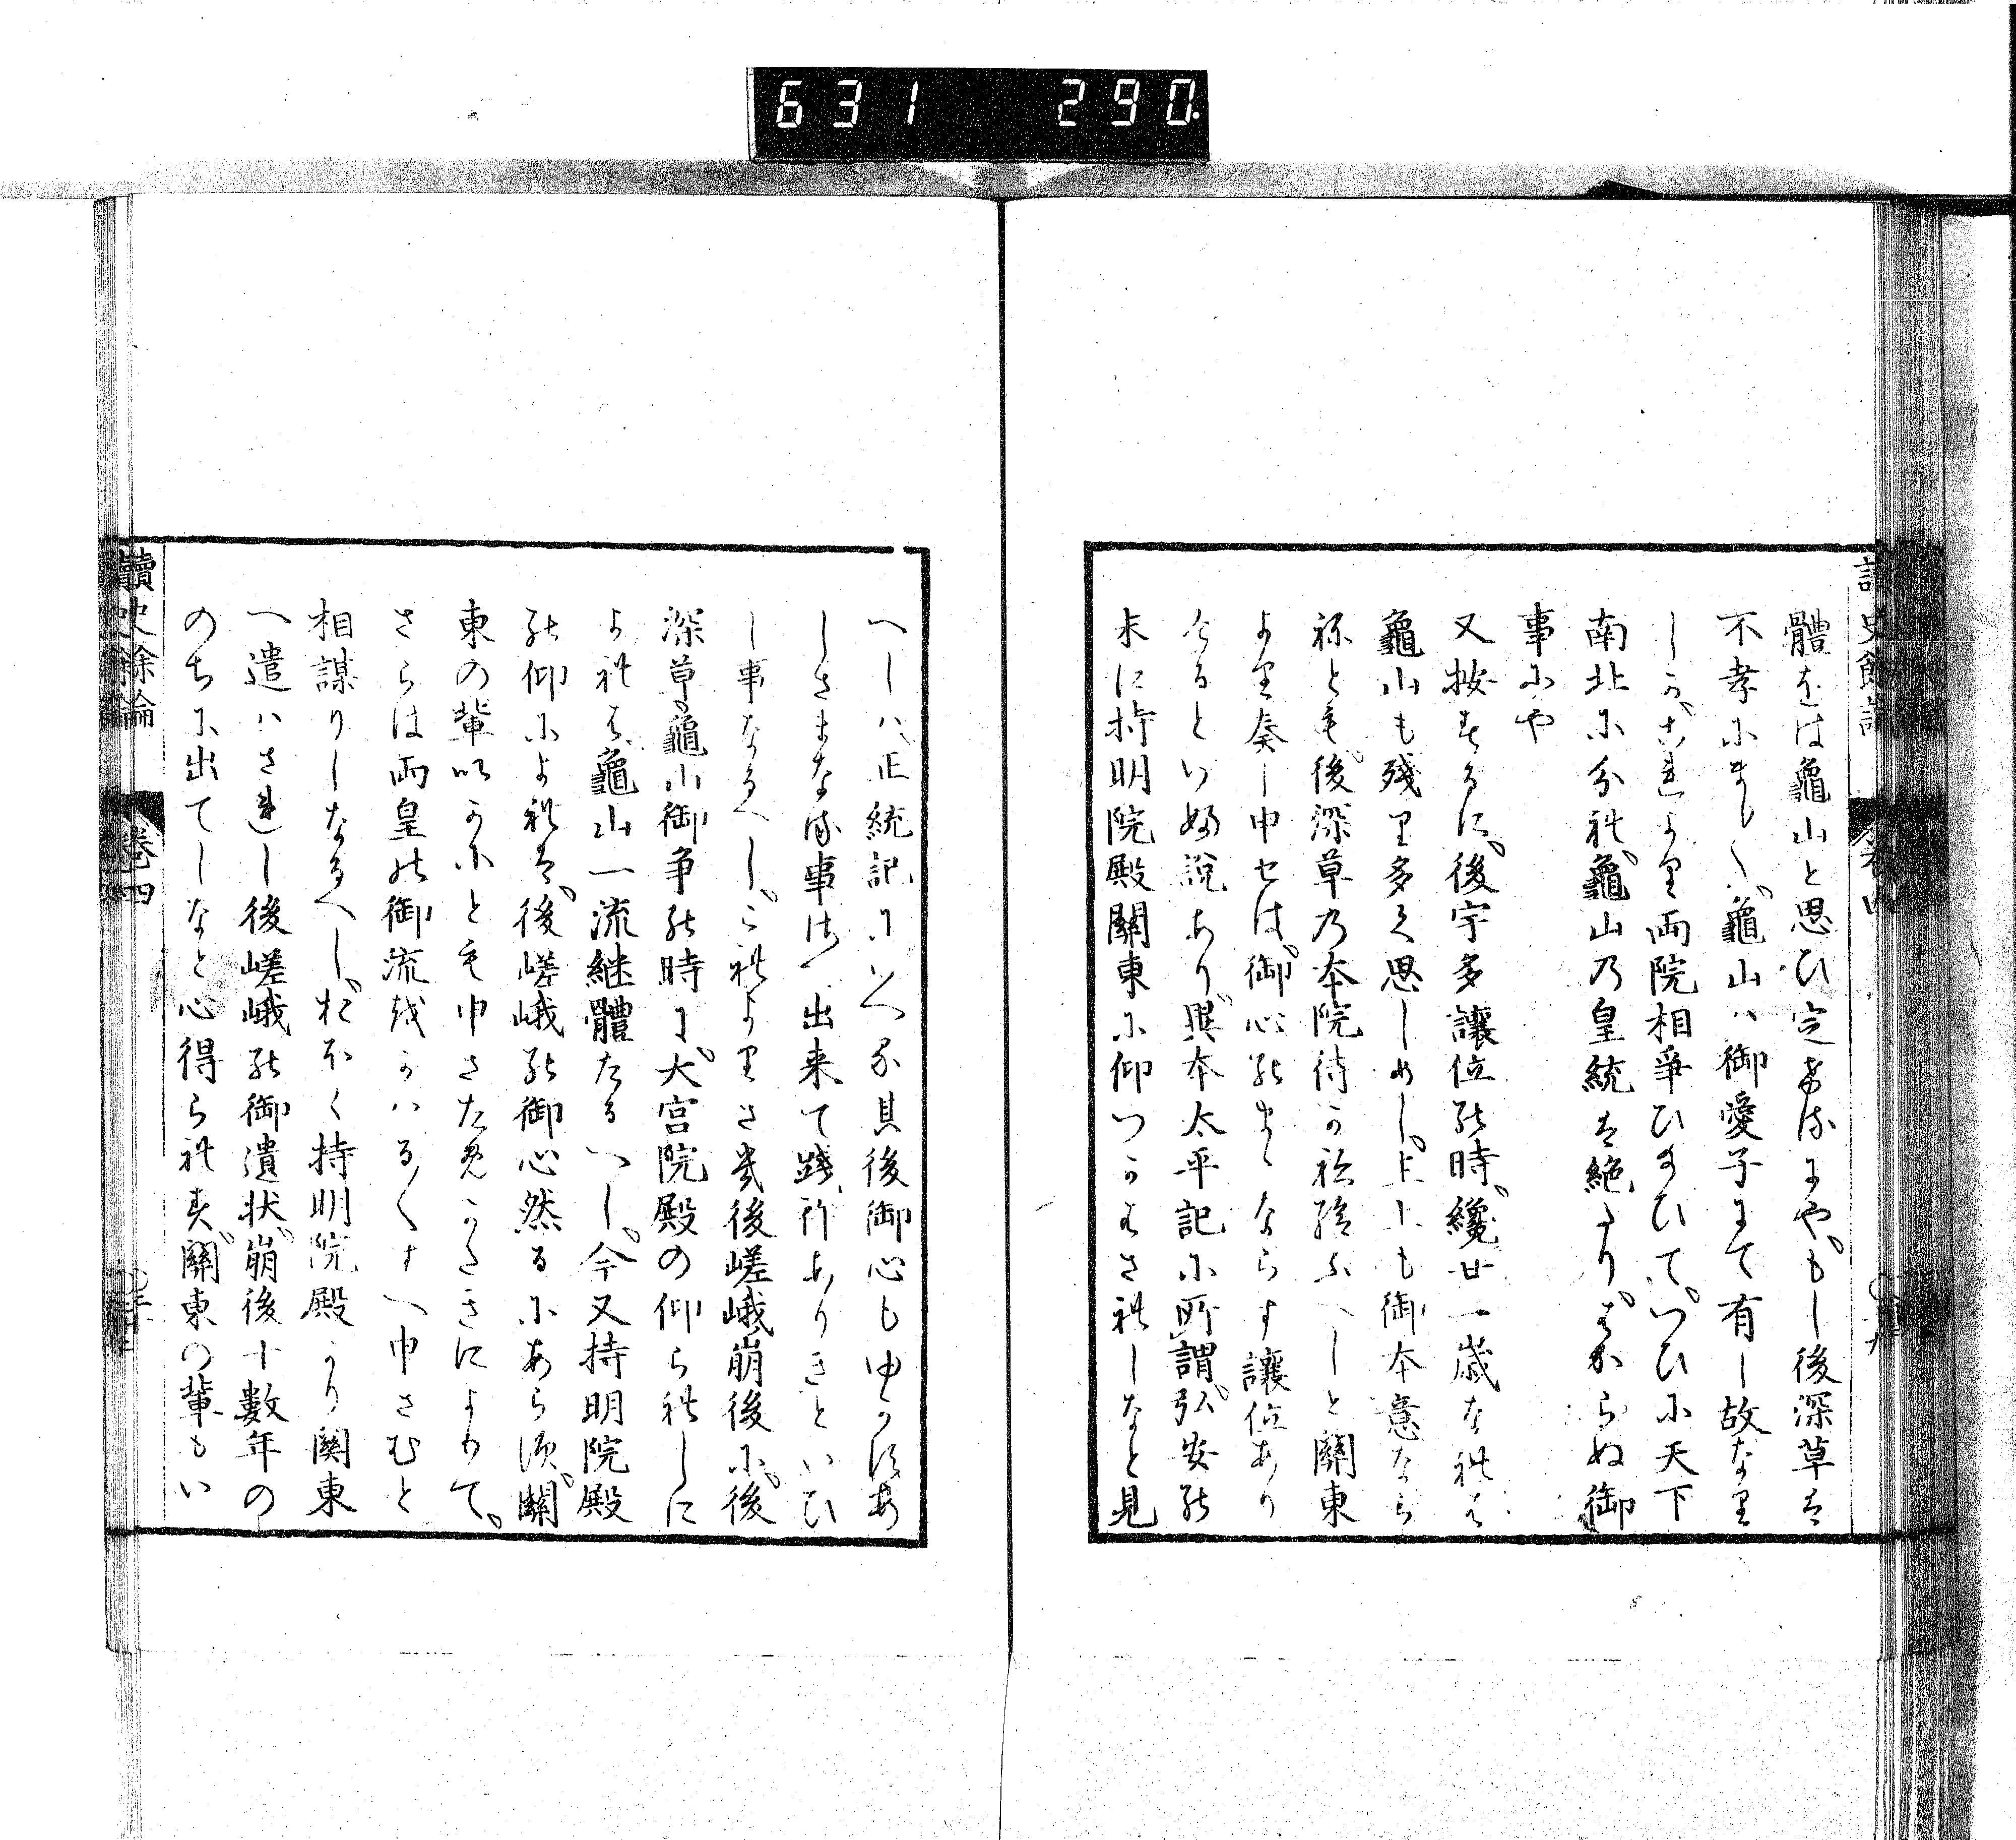 631 290.
體をは龜山と思ひ定させ給ふにや、もし後深草は
不孝にまし〱、龜山ハ御愛子にて有し故なり
しか、これより両院相爭ひ給ひて、つひに天下
南北に分れ、龜山乃皇統は絶たり、はからぬ御
事にや
又按するに、後宇多讓位の時、纔廿一歳なれは
龜山も残り多く思しめし、上にも御本意なら
ねとも、後深草乃本院待かね給ふへしと關東
より奏し申せは、御心のまゝならす讓位あり
けるといふ説あり、異本太平記に所謂、弘安の
末に持明院殿關東に仰つかはされしなと見
へしハ、正統記にいへる其後御心もゆかすあ
しさまなる事さへ出来て踐祚ありきといひ
し事なるへし、これよりさき後嵯峨崩後に、後
深草、龜山御争の時に、大宮院殿の仰られしに
よれは、龜山一流継體たるへし、今又持明院殿
の仰によれは、後嵯峨の御心然るにあらす、關
東の輩いかにとも申さためかたきによりて、
さらは両皇の御流をかハる〱すへ申さむと
相謀りしなるへし、おほく持明院殿より関東
へ遣ハされし後嵯峨の御遺状、崩後十數年の
のちに出てしなと心得られす、關東の輩もい
讀史餘論
卷四